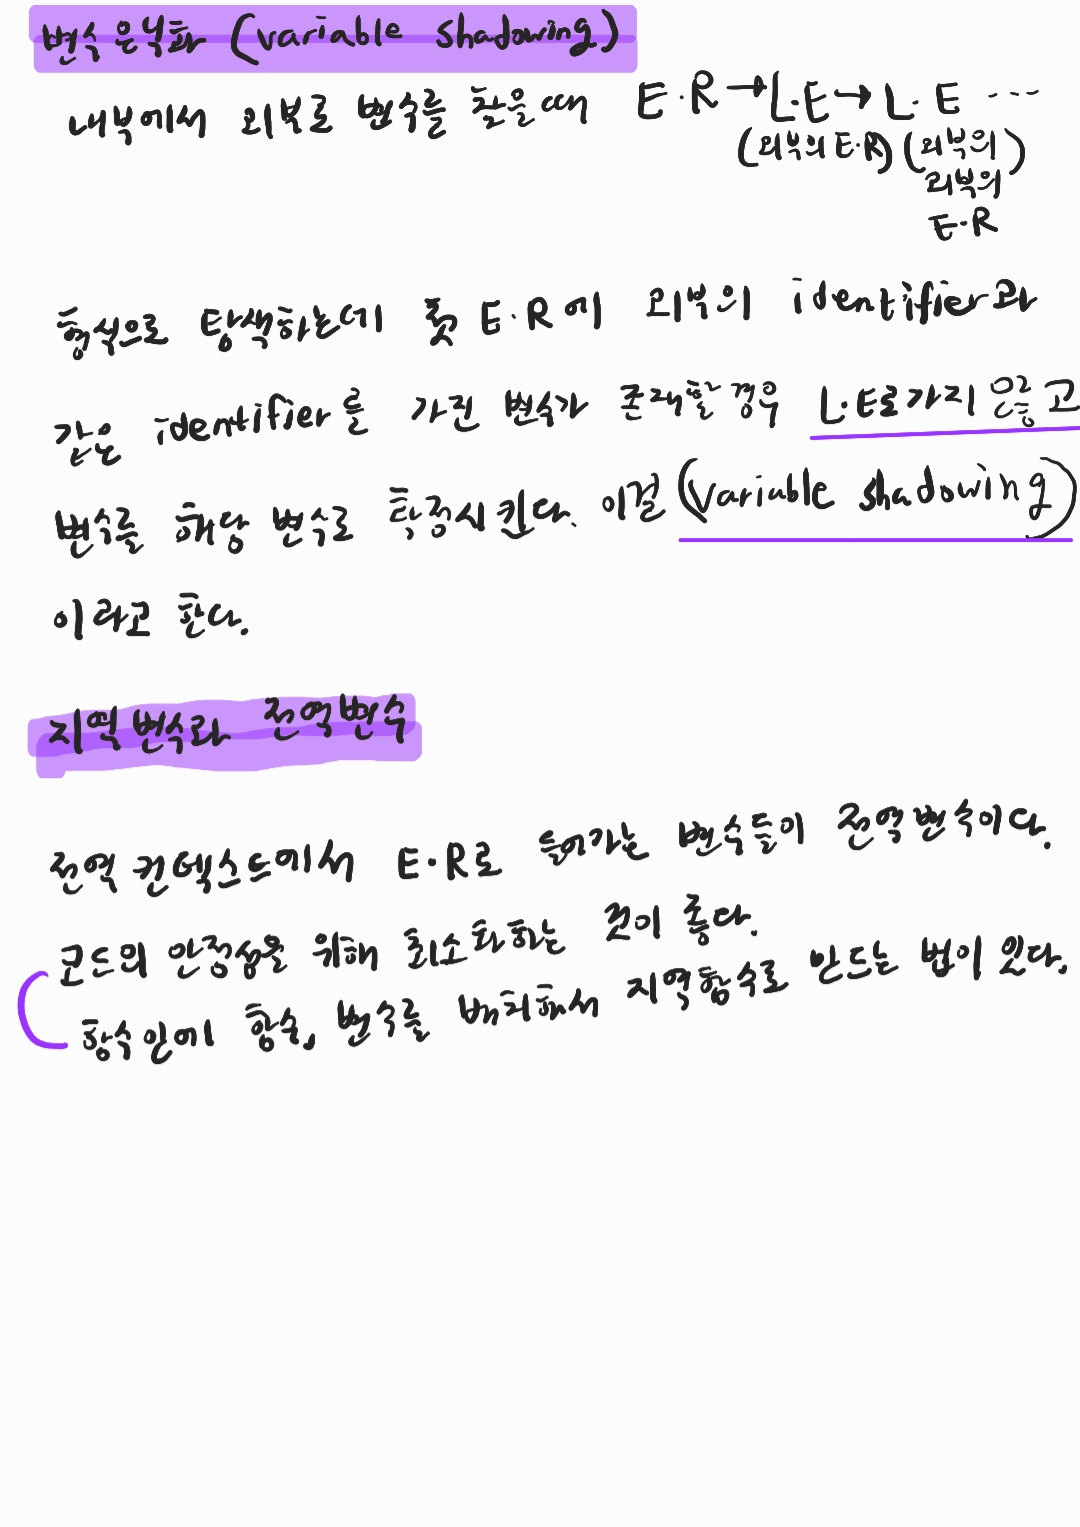 변수 은닉화 (variable shadowing)
내부에서 외부로 변수를 찾을때 E·R → L·E → L·E ----
(외부의 E·R) (외부의 외부의 E·R)
형식으로 탐색하는데 첫 E·R에 외부의 identifier과
같은 identifier를 가진 변수가 존재할 경우 L·E로 가지 않고
변수를 해당 변수로 특정시킨다. 이걸 (variable shadowing)
이라고 한다.
지역변수와 전역변수
전역 컨텍스트에서 E·R로 들어가는 변수들이 전역변수이다.
코드의 안정성을 위해 최소화하는 것이 좋다.
함수안에 함수, 변수를 배치해서 지역함수로 만드는 법이 있다.